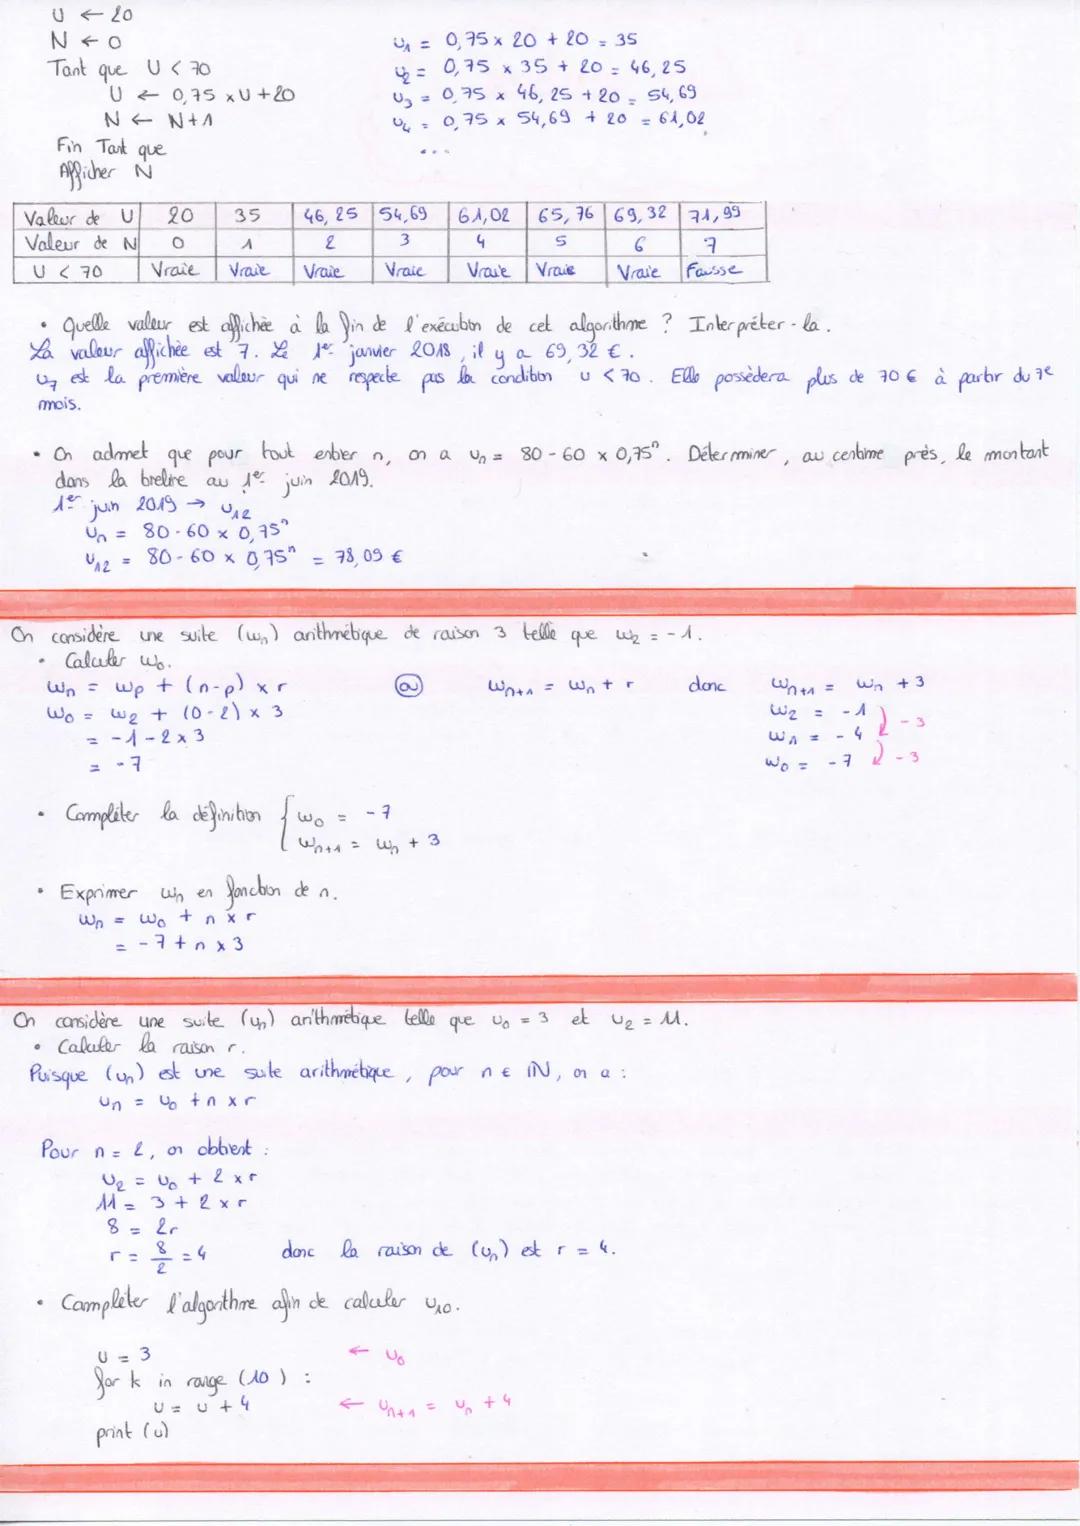 U ← 20
N ← 0
Tant que U < 70
U ← 0,75 x U + 20
N ← N+1
Fin Tant que
Afficher N
u₁ = 0,75 x 20 + 20 = 35
u₂ = 0,75 x 35 + 20 = 46,25
u₃ = 0,75 x 46,25 + 20 = 54,69
u₄ = 0,75 x 54,69 + 20 = 61,02
...
Valeur de U 20 35 46,25 54,69 61,02 65,76 69,32 71,99
Valeur de N 0 1 2 3 4 5 6 7
U < 70 Vraie Vraie Vraie Vraie Vraie Vraie Vraie Fausse
• Quelle valeur est affichée à la fin de l'exécution de cet algorithme ? Interpréter-la.
La valeur affichée est 7. Le 1er janvier 2018, il y a 69,32 €.
u₇ est la première valeur qui ne respecte pas la condition u < 70. Elle possèdera plus de 70 € à partir du 7e
mois.
• On admet que pour tout entier n, on a uₙ = 80 - 60 x 0,75ⁿ. Déterminer, au centime près, le montant
dans la brelire au 1er juin 2019.
1er juin 2019 → u₁₂
uₙ = 80 - 60 x 0,75ⁿ
u₁₂ = 80 - 60 x 0,75ⁿ = 78,09 €
On considère une suite (wₙ) arithmétique de raison 3 telle que w₂ = -1.
• Calculer w₀.
wₙ = wₚ + (n-p) x r (ou) wₙ₊₁ = wₙ + r donc wₙ₊₁ = wₙ + 3
w₀ = w₂ + (0-2) x 3 w₂ = -1
= -1 - 2 x 3 w₁ = -4 - 3
= -7 w₀ = -7 - 3
• Compléter la définition { w₀ = -7
wₙ₊₁ = wₙ + 3
• Exprimer wₙ en fonction de n.
wₙ = w₀ + n x r
= -7 + n x 3
On considère une suite (uₙ) arithmétique telle que u₀ = 3 et u₂ = 11.
• Calculer la raison r.
Puisque (uₙ) est une suite arithmétique, pour n ∈ ℕ, on a :
uₙ = u₀ + n x r
Pour n = 2, on obtient :
u₂ = u₀ + 2 x r
11 = 3 + 2 x r
8 = 2r
r = 8/2 = 4 donc la raison de (uₙ) est r = 4.
• Compléter l'algorithme afin de calculer u₁₀.
U = 3 ← u₀
for k in range (10) :
U = U + 4 ← uₙ₊₁ = uₙ + 4
print (u)